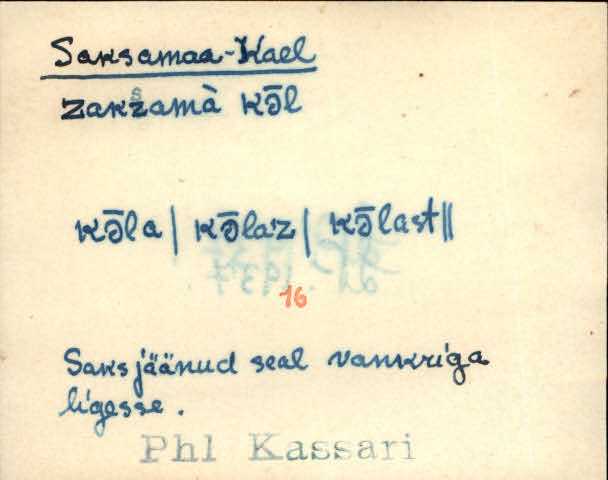 Saksamaa-Kael
zaksamà kə̄l
kə̄la | kə̄la'z | kə̄last ||
16
Saks jäänud seal vankriga
ligesse.
Phl Kassari